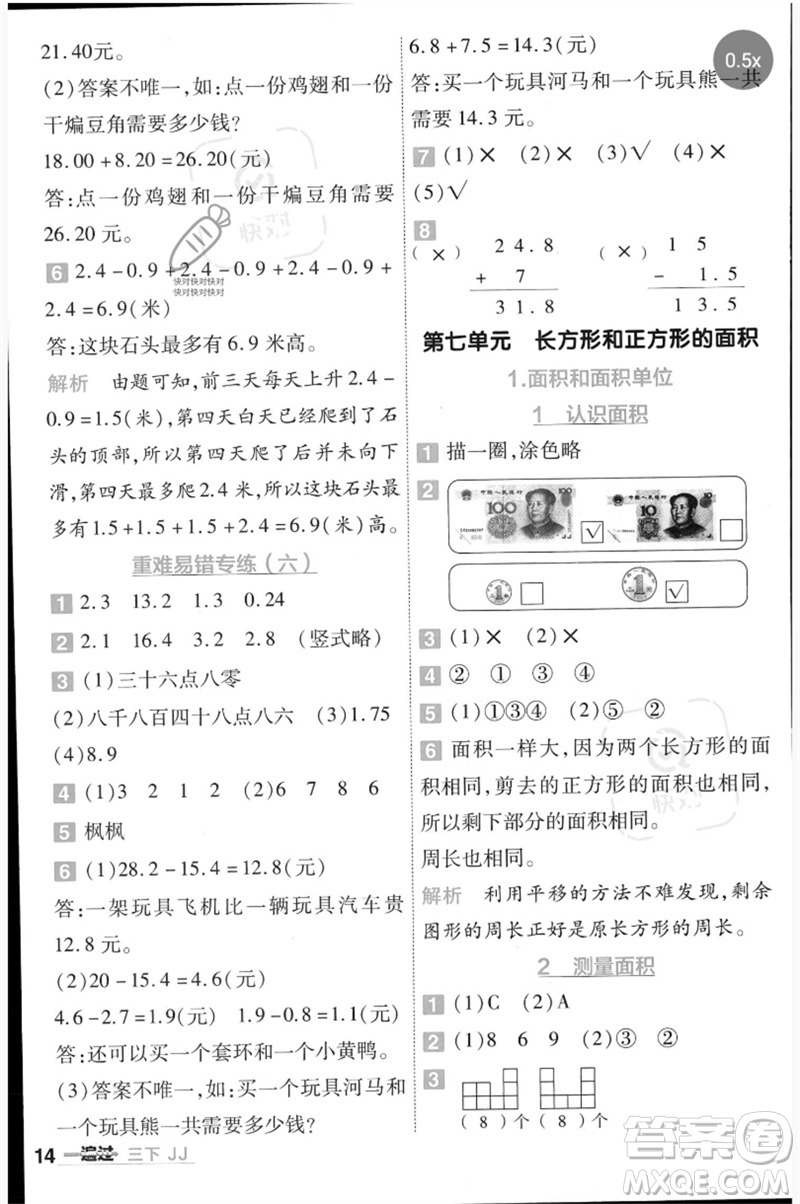 21.40元。
(2)答案不唯一,如:点一份鸡翅和一份
干煸豆角需要多少钱?
18.00+8.20=26.20(元)
答:点一份鸡翅和一份干煸豆角需要
26.20元。
6 2.4-0.9+2.4-0.9+2.4-0.9+
2.4=6.9(米)
答:这块石头最多有6.9米高。
解析 由题可知,前三天每天上升2.4-
0.9=1.5(米),第四天白天已经爬到了石
头的顶部,所以第四天爬了后并未向下
滑,第四天爬了2.4米,所以这块石头最多
有1.5+1.5+1.5+2.4=6.9(米)高。
重难易错专练(六)
1 2.3 13.2 1.3 0.24
2 2.1 16.4 3.2 2.8 (竖式略)
3 (1)三十六点八零
(2)八千八百四十八点八六 (3)1.75
(4)8.9
4 (1)3 2 1 2 (2)6 7 8 6
5 枫枫
6 (1)28.2-15.4=12.8(元)
答:一架玩具飞机比一辆玩具汽车贵
12.8元。
(2)20-15.4=4.6(元)
4.6-2.7=1.9(元) 1.9-0.8=1.1(元)
答:还可以买一个套环和一个小黄鸭。
(3)答案不唯一,如:买一个玩具河马和
一个玩具熊一共需要多少钱?
14 一遍过 三下 JJ
6.8+7.5=14.3(元)
答:买一个玩具河马和一个玩具熊一共
需要14.3元。
0.5x
7 (1)× (2)× (3)√ (4)×
(5)√
8
(×) 24.8 (×) 15
+ 7 - 1.5
31.8 13.5
第七单元 长方形和正方形的面积
1.面积和面积单位
1 认识面积
1 描一圈,涂色略
2
中国人民银行 100 100 √ 中国人民银行 10 10
1 1 √
3 (1)× (2)×
4 ② ① ③ ④
5 (1)①③④ (2)⑤ ②
6 面积一样大,因为两个长方形的面
积相同,剪去的正方形的面积也相同,
所以剩下部分的面积相同。
周长也相同。
解析 利用平移的方法不难发现,剩余
图形的周长正好是原长方形的周长。
2 测量面积
1 (1)C (2)A
2 (1)8 6 9 (2)③ ②
3
(8)个 (8)个
快对
快对快对快对
快对快对快对
快对
答案圈
MXQE.COM